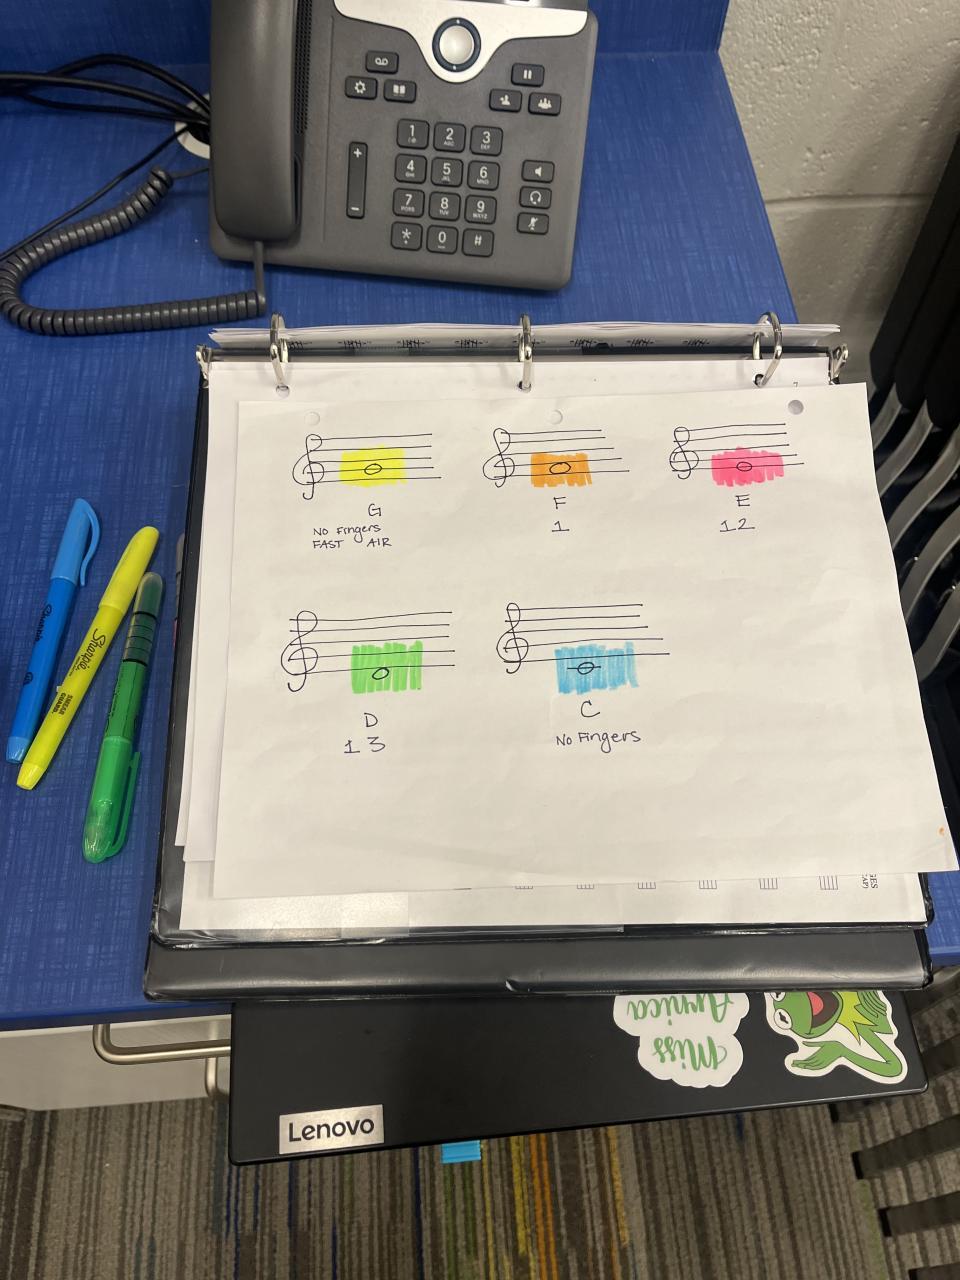 1
2 ABC
3
4 GHI
5 JKL
6 MNO
7 PQRS
8 TUV
9 WXYZ
*
0
#
G
No Fingers
FAST AIR
F
1
E
12
D
13
C
No Fingers
Sharpie
Sharpie
SMEAR GUARD
Miss
Annica
Lenovo